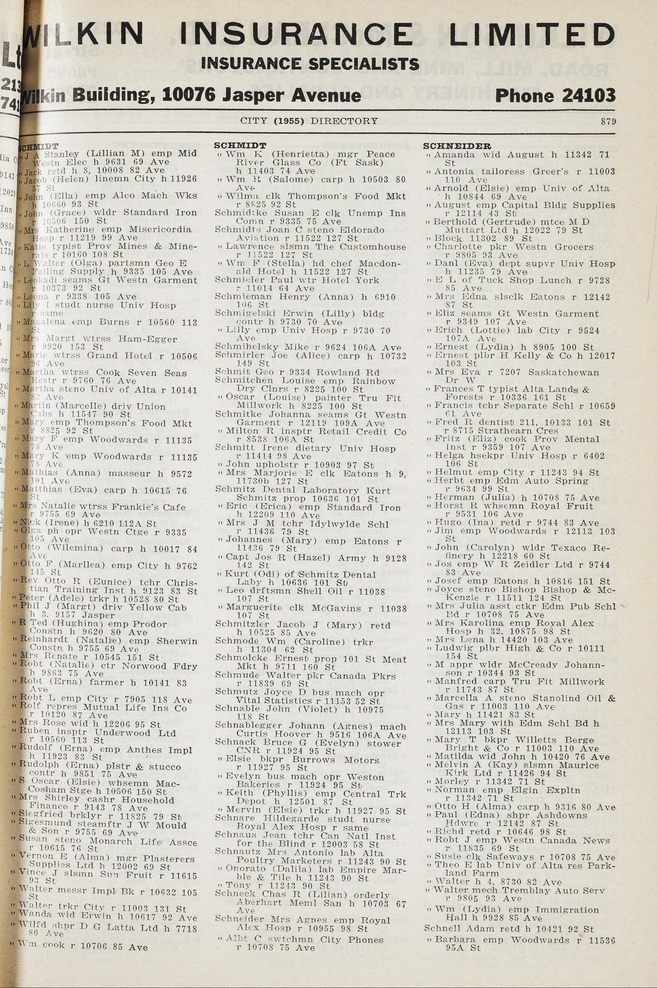 WILKIN INSURANCE LIMITED
INSURANCE SPECIALISTS
Wilkin Building, 10076 Jasper Avenue Phone 24103
CITY (1955) DIRECTORY 879
SCHMIDT
" J A Stanley (Lillian M) emp Mid
Westn Elec h 9631 69 Ave
" Jack retd h 8, 10008 82 Ave
" Jacob (Helen) linemn City h 11926
57 St
" John (Ella) emp Alco Mach Wks
h 10660 93 St
" John (Grace) wldr Standard Iron
r 10506 150 St
" Mrs Katherine emp Misericordia
Hosp r 11219 99 Ave
" Katie typist Prov Mines & Mine-
rals r 10160 108 St
" L Walter (Olga) partsmn Geo E
Failing Supply h 9335 105 Ave
" Leokadi seams Gt Westn Garment
r 10373 92 St
" Leona r 9338 105 Ave
" Lily I studt nurse Univ Hosp
r same
" Magalena emp Burns r 10560 113
St
" Mrs Margt wtrss Ham-Egger
r 9920 153 St
" Marie wtrss Grand Hotel r 10506
96 Ave
" Martha wtrss Cook Seven Seas
Restr r 9760 76 Ave
" Martha steno Univ of Alta r 10141
83 Ave
" Martin (Marcelle) driv Union
Cabs h 11547 90 St
" Mary emp Thompson's Food Mkt
r 8825 92 St
" Mary F emp Woodwards r 11135
78 Ave
" Mary K emp Woodwards r 11135
78 Ave
" Mathias (Anna) masseur h 9572
101 Ave
" Matthias (Eva) carp h 10615 76
St
" Mrs Natalie wtrss Frankie's Cafe
r 9755 69 Ave
" Nick (Irene) h 6210 112A St
" Olga ph opr Westn Ctge r 9335
105 Ave
" Otto (Wilemina) carp h 10017 84
Ave
" Otto F (Marllea) emp City h 9762
145 St
" Rev Otto R (Eunice) tchr Chris-
tian Training Inst h 9123 83 St
" Peter (Adele) trkr h 10528 80 St
" Phil J (Margt) driv Yellow Cab
h 3, 9157 Jasper
" R Ted (Hughina) emp Prodor
Constn h 9620 80 Ave
" Reinhardt (Natalie) emp Sherwin
Constn h 9755 69 Ave
" Mrs Renate r 10545 151 St
" Robt (Natalie) ctr Norwood Fdry
h 9863 75 Ave
" Robt (Erna) farmer h 10141 83
Ave
" Robt L emp City r 7905 118 Ave
" Rolf repres Mutual Life Ins Co
r 10120 87 Ave
" Mrs Rose wid h 12206 95 St
" Ruben insptr Underwood Ltd
r 10560 113 St
" Rudolf (Erna) emp Anthes Impl
h 11923 83 St
" Rudolph (Erna) plstr & stucco
contr h 9851 75 Ave
" S Oscar (Elsie) whsemn Mac-
Cosham Stge h 10506 150 St
" Mrs Shirley cashr Household
Finance r 9143 78 Ave
" Siegfried brklyr r 11825 79 St
" Sigesmund steamftr J W Mould
& Son r 9755 69 Ave
" Susan steno Monarch Life Assce
r 10615 76 St
" Vernon E (Alma) mgr Plasterers
Supplies Ltd h 12002 69 St
" Vince J slsmn Sun Fruit r 11615
93 St
" Walter messr Impl Bk r 10632 105
St
" Walter trkr City r 11003 131 St
" Wanda wid Erwin h 10617 92 Ave
" Wilfd shpr D G Latta Ltd h 7718
80 Ave
" Wm cook r 10706 85 Ave
SCHMIDT
" Wm K (Henrietta) mgr Peace
River Glass Co (Ft Sask)
h 11403 74 Ave
" Wm R (Salome) carp h 10503 80
Ave
" Wilma clk Thompson's Food Mkt
r 8825 92 St
Schmidtke Susan E clk Unemp Ins
Comn r 9335 75 Ave
Schmidts Joan C steno Eldorado
Aviation r 11522 127 St
" Lawrence slsmn The Customhouse
r 11522 127 St
" Wm F (Stella) hd chef Macdon-
ald Hotel h 11522 127 St
Schmieler Paul wtr Hotel York
r 11014 64 Ave
Schmieman Henry (Anna) h 6910
106 St
Schmigelski Erwin (Lilly) bldg
contr h 9730 70 Ave
" Lilly emp Univ Hosp r 9730 70
Ave
Schmihelsky Mike r 9624 106A Ave
Schmirler Joe (Alice) carp h 10732
149 St
Schmit Geo r 9334 Rowland Rd
Schmitchen Louise emp Rainbow
Dry Clnrs r 8225 100 St
" Oscar (Louise) painter Tru Fit
Millwork h 8225 100 St
Schmitke Johanna seams Gt Westn
Garment r 12119 109A Ave
" Milton R insptr Retail Credit Co
r 8538 106A St
Schmitt Irene dietary Univ Hosp
r 11414 98 Ave
" John upholstr r 10903 97 St
" Mrs Marjorie E clk Eatons h 9,
11730b 127 St
Schmitz Dental Laboratory Kurt
Schmitz prop 10636 101 St
" Eric (Erica) emp Standard Iron
h 12209 110 Ave
" Mrs J M tchr Idylwylde Schl
r 11436 79 St
" Johannes (Mary) emp Eatons r
11436 79 St
" Capt Jos R (Hazel) Army h 9128
142 St
" Kurt (Odi) of Schmitz Dental
Laby h 10636 101 St
" Leo drftsmn Shell Oil r 11038
107 St
" Marguerite clk McGavins r 11038
107 St
Schmitzler Jacob J (Mary) retd
h 10525 85 Ave
Schmode Wm (Caroline) trkr
h 11304 62 St
Schmolcke Ernest prop 101 St Meat
Mkt h 9711 160 St
Schmude Walter pkr Canada Pkrs
r 11839 69 St
Schmutz Joyce D bus mach opr
Vital Statistics r 11153 52 St
Schnable John (Violet) h 10975
118 St
Schnablegger Johann (Agnes) mach
Curtis Hoover h 9516 106A Ave
Schnack Bruce G (Evelyn) stower
CNR r 11924 95 St
" Elsie bkpr Burrows Motors
r 11927 95 St
" Evelyn bus mach opr Weston
Bakeries r 11924 95 St
" Keith (Phyllis) emp Central Trk
Depot h 12501 87 St
" Mervin (Elsie) trkr h 11927 95 St
Schnare Hildegarde studt nurse
Royal Alex Hosp r same
Schnaus Jean tchr Can Natl Inst
for the Blind r 12003 58 St
Schnautz Mrs Antonio lab Alta
Poultry Marketers r 11243 90 St
" Onorato (Dalila) lab Empire Mar-
ble & Tile h 11243 90 St
" Tony r 11243 90 St
Schneck Chas R (Lilian) orderly
Aberhart Meml San h 10703 67
Ave
Schneider Mrs Agnes emp Royal
Alex Hosp r 10955 98 St
" Albt C swtchmn City Phones
r 10708 75 Ave
SCHNEIDER
" Amanda wid August h 11342 71
St
" Antonia tailoress Greer's r 11003
110 Ave
" Arnold (Elsie) emp Univ of Alta
h 10844 69 Ave
" August emp Capital Bldg Supplies
r 12114 43 St
" Berthold (Gertrude) mtce M D
Muttart Ltd h 12022 79 St
" Block 11302 89 St
" Charlotte pkr Westn Grocers
r 9805 93 Ave
" Danl (Eva) dept supvr Univ Hosp
h 11235 79 Ave
" E L of Tuck Shop Lunch r 9728
85 Ave
" Mrs Edna slsclk Eatons r 12142
87 St
" Eliz seams Gt Westn Garment
r 9349 107 Ave
" Erich (Lottie) lab City r 9524
107A Ave
" Ernest (Lydia) h 8905 100 St
" Ernest plbr H Kelly & Co h 12017
103 St
" Mrs Eva r 7207 Saskatchewan
Dr W
" Frances T typist Alta Lands &
Forests r 10336 161 St
" Francis tchr Separate Schl r 10659
61 Ave
" Fred R dentist 211, 10133 101 St
r 8715 Strathearn Cres
" Fritz (Eliz) cook Prov Mental
Inst r 9359 107 Ave
" Helga hsekpr Univ Hosp r 6402
106 St
" Helmut emp City r 11243 94 St
" Herbt emp Edm Auto Spring
r 9634 99 St
" Herman (Julia) h 10708 75 Ave
" Horst R whsemn Royal Fruit
r 9531 106 Ave
" Hugo (Ina) retd r 9744 83 Ave
" Jim emp Woodwards r 12113 103
St
" John (Carolyn) wldr Texaco Re-
finery h 12218 60 St
" Jos emp W R Zeidler Ltd r 9744
83 Ave
" Josef emp Eatons h 10816 151 St
" Joyce steno Bishop Bishop & Mc-
Kenzie r 11511 124 St
" Mrs Julia asst ctkr Edm Pub Schl
Bd r 10708 75 Ave
" Mrs Karolina emp Royal Alex
Hosp h 32, 10875 98 St
" Mrs Lena h 14420 103 Ave
" Ludwig plbr High & Co r 10111
154 St
" M appr wldr McCready Johann-
son r 10344 93 St
" Manfred carp Tru Fit Millwork
r 11743 87 St
" Marcella A steno Stanolind Oil &
Gas r 11003 110 Ave
" Mary h 11421 83 St
" Mrs Mary with Edm Schl Bd h
12113 103 St
" Mary T bkpr Willetts Berge
Bright & Co r 11003 110 Ave
" Matilda wid John h 10420 76 Ave
" Melvin A (Kay) slsmn Maurice
Kirk Ltd r 11426 94 St
" Morley r 11342 71 St
" Norman emp Elgin Expltn
r 11342 71 St
" Otto H (Alma) carp h 9316 80 Ave
" Paul (Edna) shpr Ashdowns
Hdwre r 12142 87 St
" Richd retd r 10646 98 St
" Robt J emp Westn Canada News
r 11835 69 St
" Susie clk Safeways r 10708 75 Ave
" Theo E lab Univ of Alta res Park-
land Farm
" Walter h 4, 8730 82 Ave
" Walter mech Tremblay Auto Serv
r 9805 93 Ave
" Wm (Lydia) emp Immigration
Hall h 9928 85 Ave
Schnell Adam retd h 10421 92 St
" Barbara emp Woodwards r 11536
95A St